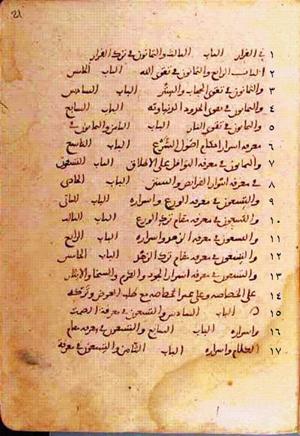 في الفرار الباب الثالث والثمانون في ترك الفرار ١
الباب الرابع والثمانون في تقوى الله الباب الخامس ٢
والثمانون في تقوى الحجاب والستر الباب السادس ٣
والثمانون في تقوى الحدود الدنياوية الباب السابع ٤
والثمانون في تقوى النار الباب الثامن والثمانون في ٥
معرفة اسرار احكام اصول الشرع الباب التاسع ٦
والثمانون في معرفة النوافل على الاطلاق الباب التسعون ٧
في معرفة اسرار الفرائض والسنن الباب الحادي ٨
والتسعون في معرفة الورع واسراره الباب الثاني ٩
والتسعون في معرفة مقام ترك الورع الباب الثالث ١٠
والتسعون في معرفة الزهد واسراره الباب الرابع ١١
والتسعون في معرفة مقام ترك الزهد الباب الخامس ١٢
والتسعون في معرفة اسرار الجود والكرم والسخا والايثار ١٣
على الخصاصة وعلى غير الخصاصة مع طلب العوض وتركه ١٤
الباب السادس والتسعون في معرفة الصمت ١٥
واسراره الباب السابع والتسعون في معرفة مقام ١٦
الكلام واسراره الباب الثامن والتسعون في معرفة ١٧